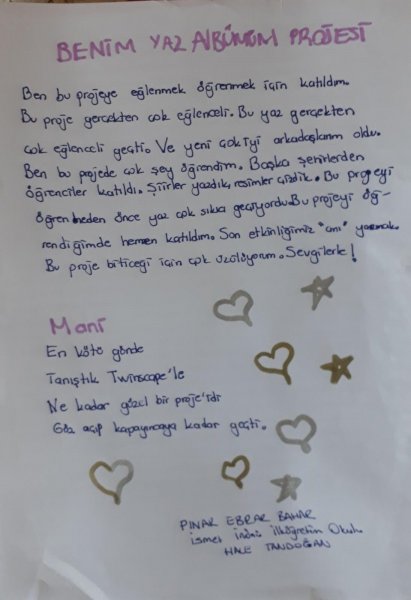 BENİM YAZ AlBÜMÜM PROJESİ
Ben bu projeye eğlenmek öğrenmek için katıldım.
Bu proje gerçekten çok eğlenceli. Bu yaz gerçekten
çok eğlenceli geçti. Ve yeni çok iyi arkadaşlarım oldu.
Ben bu projede çok şey öğrendim. Başka şehirlerden
öğrenciler katıldı. Şiirler yazdık, resimler çizdik. Bu projeyi
öğrenmeden önce yaz çok sıkıcı geçiyordu. Bu projeyi öğ-
rendiğimde hemen katıldım. Son etkinliğimiz "anı" yazmak.
Bu proje biticeği için çok üzülüyorum. Sevgilerle!
Mani
En kötü günde
Tanıştık Twinscape'le
Ne kadar güzel bir proje'idi
Göz açıp kapayıncaya kadar geçti.
PINAR EBRAR BAHAR
İsmet İnönü İlköğretim Okulu
HALE TANDOĞAN